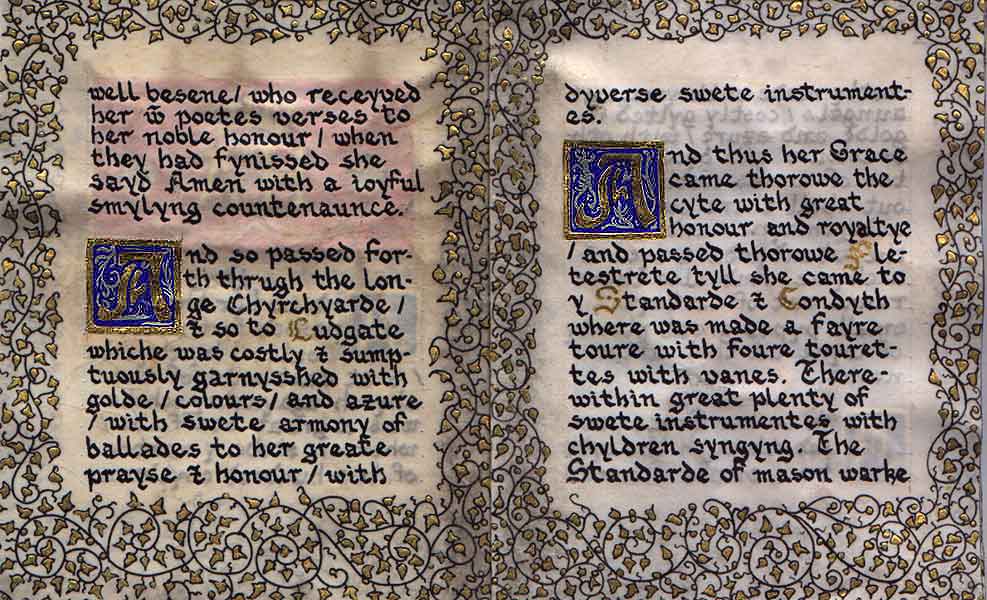 well besene / who receyved
her w̃ poetes verses to
her noble honour / when
they had fynissed she
sayd Amen with a ioyful
smylyng countenaunce.
And so passed for-
th thrugh the lon-
ge Chyrchyarde /
⁊ so to Ludgate
whiche was costly ⁊ sump-
tuously garnysshed with
golde / colours / and azure
/ with swete armony of
ballades to her greate
prayse ⁊ honour / with
dyverse swete instrument-
es.
And thus her Grace
came thorowe the
cyte with great
honour and royaltye
/ and passed thorowe Fle-
testrete tyll she came to
y Standarde ⁊ Condyth
where was made a fayre
toure with foure touret-
tes with vanes. There-
within great plenty of
swete instrumentes with
chyldren syngyng. The
Standarde of mason warke